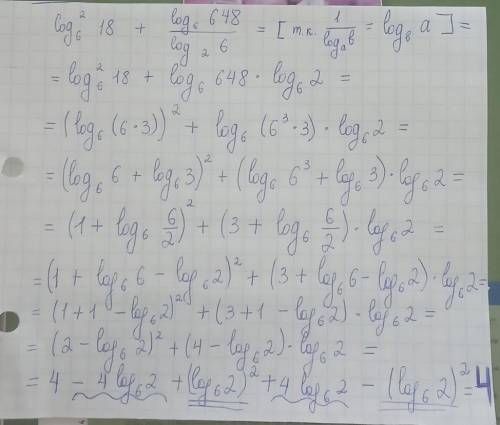 log₆² 18 + log₆ 648 / log₂ 6 = [ т.к. 1 / logₐ b = log_b a ] =
= log₆² 18 + log₆ 648 · log₆ 2 =
= (log₆ (6·3))² + log₆ (6³·3) · log₆ 2 =
= (log₆ 6 + log₆ 3)² + (log₆ 6³ + log₆ 3) · log₆ 2 =
= (1 + log₆ 6/2)² + (3 + log₆ 6/2) · log₆ 2 =
= (1 + log₆ 6 − log₆ 2)² + (3 + log₆ 6 − log₆ 2) · log₆ 2 =
= (1 + 1 − log₆ 2)² + (3 + 1 − log₆ 2) · log₆ 2 =
= (2 − log₆ 2)² + (4 − log₆ 2) · log₆ 2 =
= 4 − 4 log₆ 2 + (log₆ 2)² + 4 log₆ 2 − (log₆ 2)² = 4